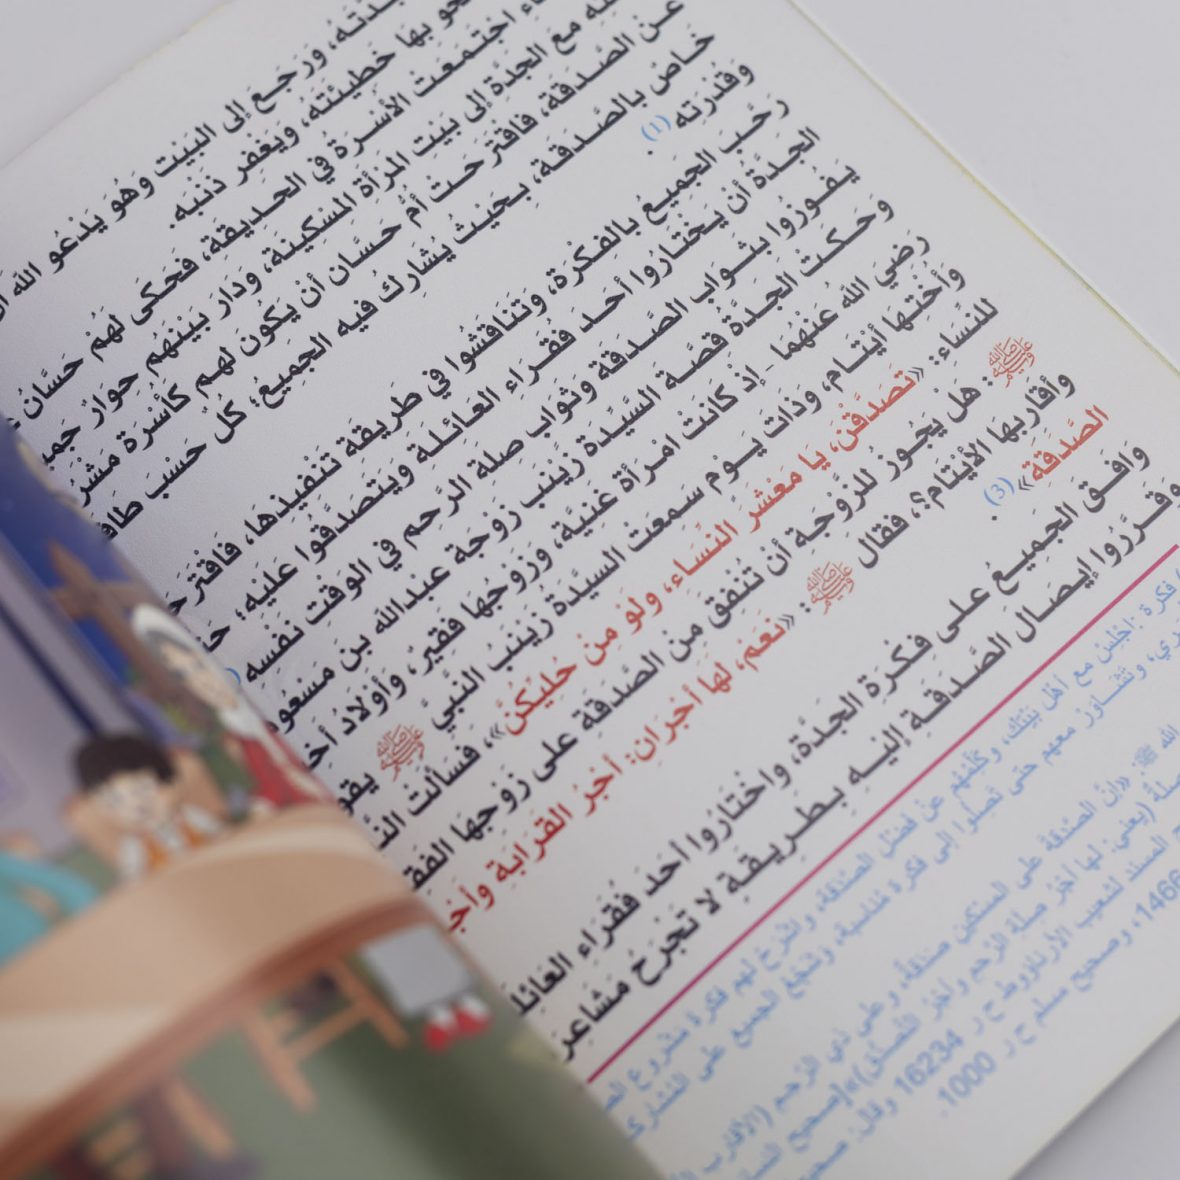 ورَجَعَ إلى البَيْتِ وَهُو يَدْعُو الله
بها خَطِيئَتَهُ، ويَغفر ذَنْبَه.
اجْتَمَعَتْ الأُسْرَةُ في الحَديقَةِ، فَحَكَى لَهُمْ حَسَّانُ
مع الجَدَّةِ إلى بَيْتِ المَرْأَةِ المِسْكِينَة، ودَار بَيْنَهُم حِوَارٌ
عَنْ الصَّدقَة، فَاقْتَرحَتْ أمُّ حَسَّان أن يَكُونَ لهم كأسْرة
خاصٌ بالصَّدقَة، بِحَيْثُ يُشَارِكُ فيه الجَمِيعُ؛ كُلٌ حَسْبَ
وَقُدْرَتِه (1).
رَحَّبَ الجَمِيعُ بالفِكْرَة، وتَنَاقَشُوا في طَرِيقَة تَنْفِيذِها، فَاقْتَرَحَ
الجَدَّةُ أنْ يَخْتَارُوا أحَدَ فقَرَاءِ العَائِلَة ويَتَصدَّقُوا عَلَيْه؛
لِيَفُوزُوا بِثَوَابِ الصَّدقَة وثَوَابِ صِلَة الرَّحِم في الوَقْت نَفْسِه
وَحَكَتْ الجَدَّةُ قِصَّة السَّيِّدَة زَيْنَبَ زَوْجَة عبدالله بن مَسْعُودٍ
رَضِيَ اللهُ عنْهُمَا - إذ كَانَتْ امْرأة غَنِيَّة، وزَوْجُها فَقِيرٌ، وأوْلَادُ
وَأُخْتُها أيْتَام، وذاتَ يَوْم سَمعَتْ السَّيِّدَة زَيْنَبُ النبيَّ ﷺ
للنِّسَاء: «تَصَدَّقْن، يا مَعْشَرَ النِّسَاء، ولَوْ مِنْ حُلِيِّكُنَّ»، فَسَألَت
ﷺ: هل يَجُوزُ للزَّوْجَة أنْ تُنفِق مِنْ الصَّدَقَةِ على زَوْجِهَا
وأقارِبها الأيْتام؟، فقال ﷺ: «نَعَمْ، لها أجْرانِ: أجْرُ القَرَابَةِ وأجْرُ
الصَّدقَة» (3).
وَافَقَ الجَمِيعُ على فِكْرَة الجَدَّة، واخْتَارُوا أحَدَ فُقَرَاءِ العَائِلَة
وقَرَّرُوا إيصَالَ الصَّدَقَةِ إليْهِ بطَرِيقَة لا تَجْرَحْ مَشَاعِرَ
فكرة: اجْلِسْ مع أهْلِ بَيْتِك، وكَلِّمْهُم عَنْ فَضْل الصَّدَقَة، واشْرَحْ لهم فكرة مَشْروع
وتَشَاوَرْ معهم حتى تصِلُوا إلى فكرة مناسبة، وشَجِّعْ الجميع على
الله ﷺ: «إنَّ الصَّدَقَةَ على المسْكِين صدَقَةٌ، وعلى ذِي الرَّحِم
(يعني: لها أجْرُ صِلَةِ الرَّحِم وأجْرُ التَّصَدُّق)»
المسند لشعيب الأرناؤوط ح ر 16234 وقال:
1466، وصحيح مسلم ح ر 1000.